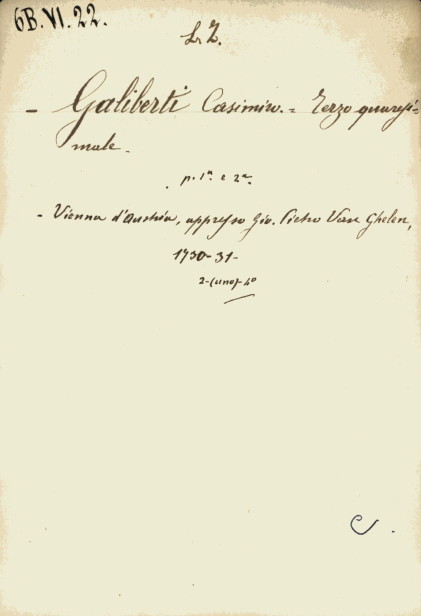 6B.VI.22.
L.Z.
- Galiberti Casimiro. = Terzo quaresi-
male.
p. 1ª e 2ª.
- Vienna d'Austria, appresso Gio. Pietro Van Ghelen,
1730-31-
2-(uno)-4º